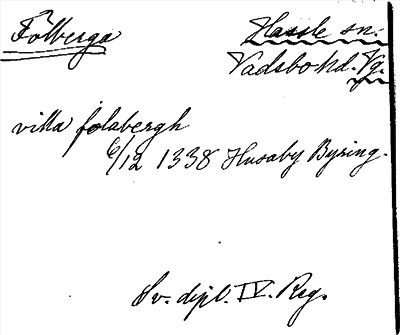 Folberga
Hassle sn.
Vadsbo hd. Vg.
villa folabergh
6/12 1338 Husaby Byring.
Sv. dipl. IV. Reg.